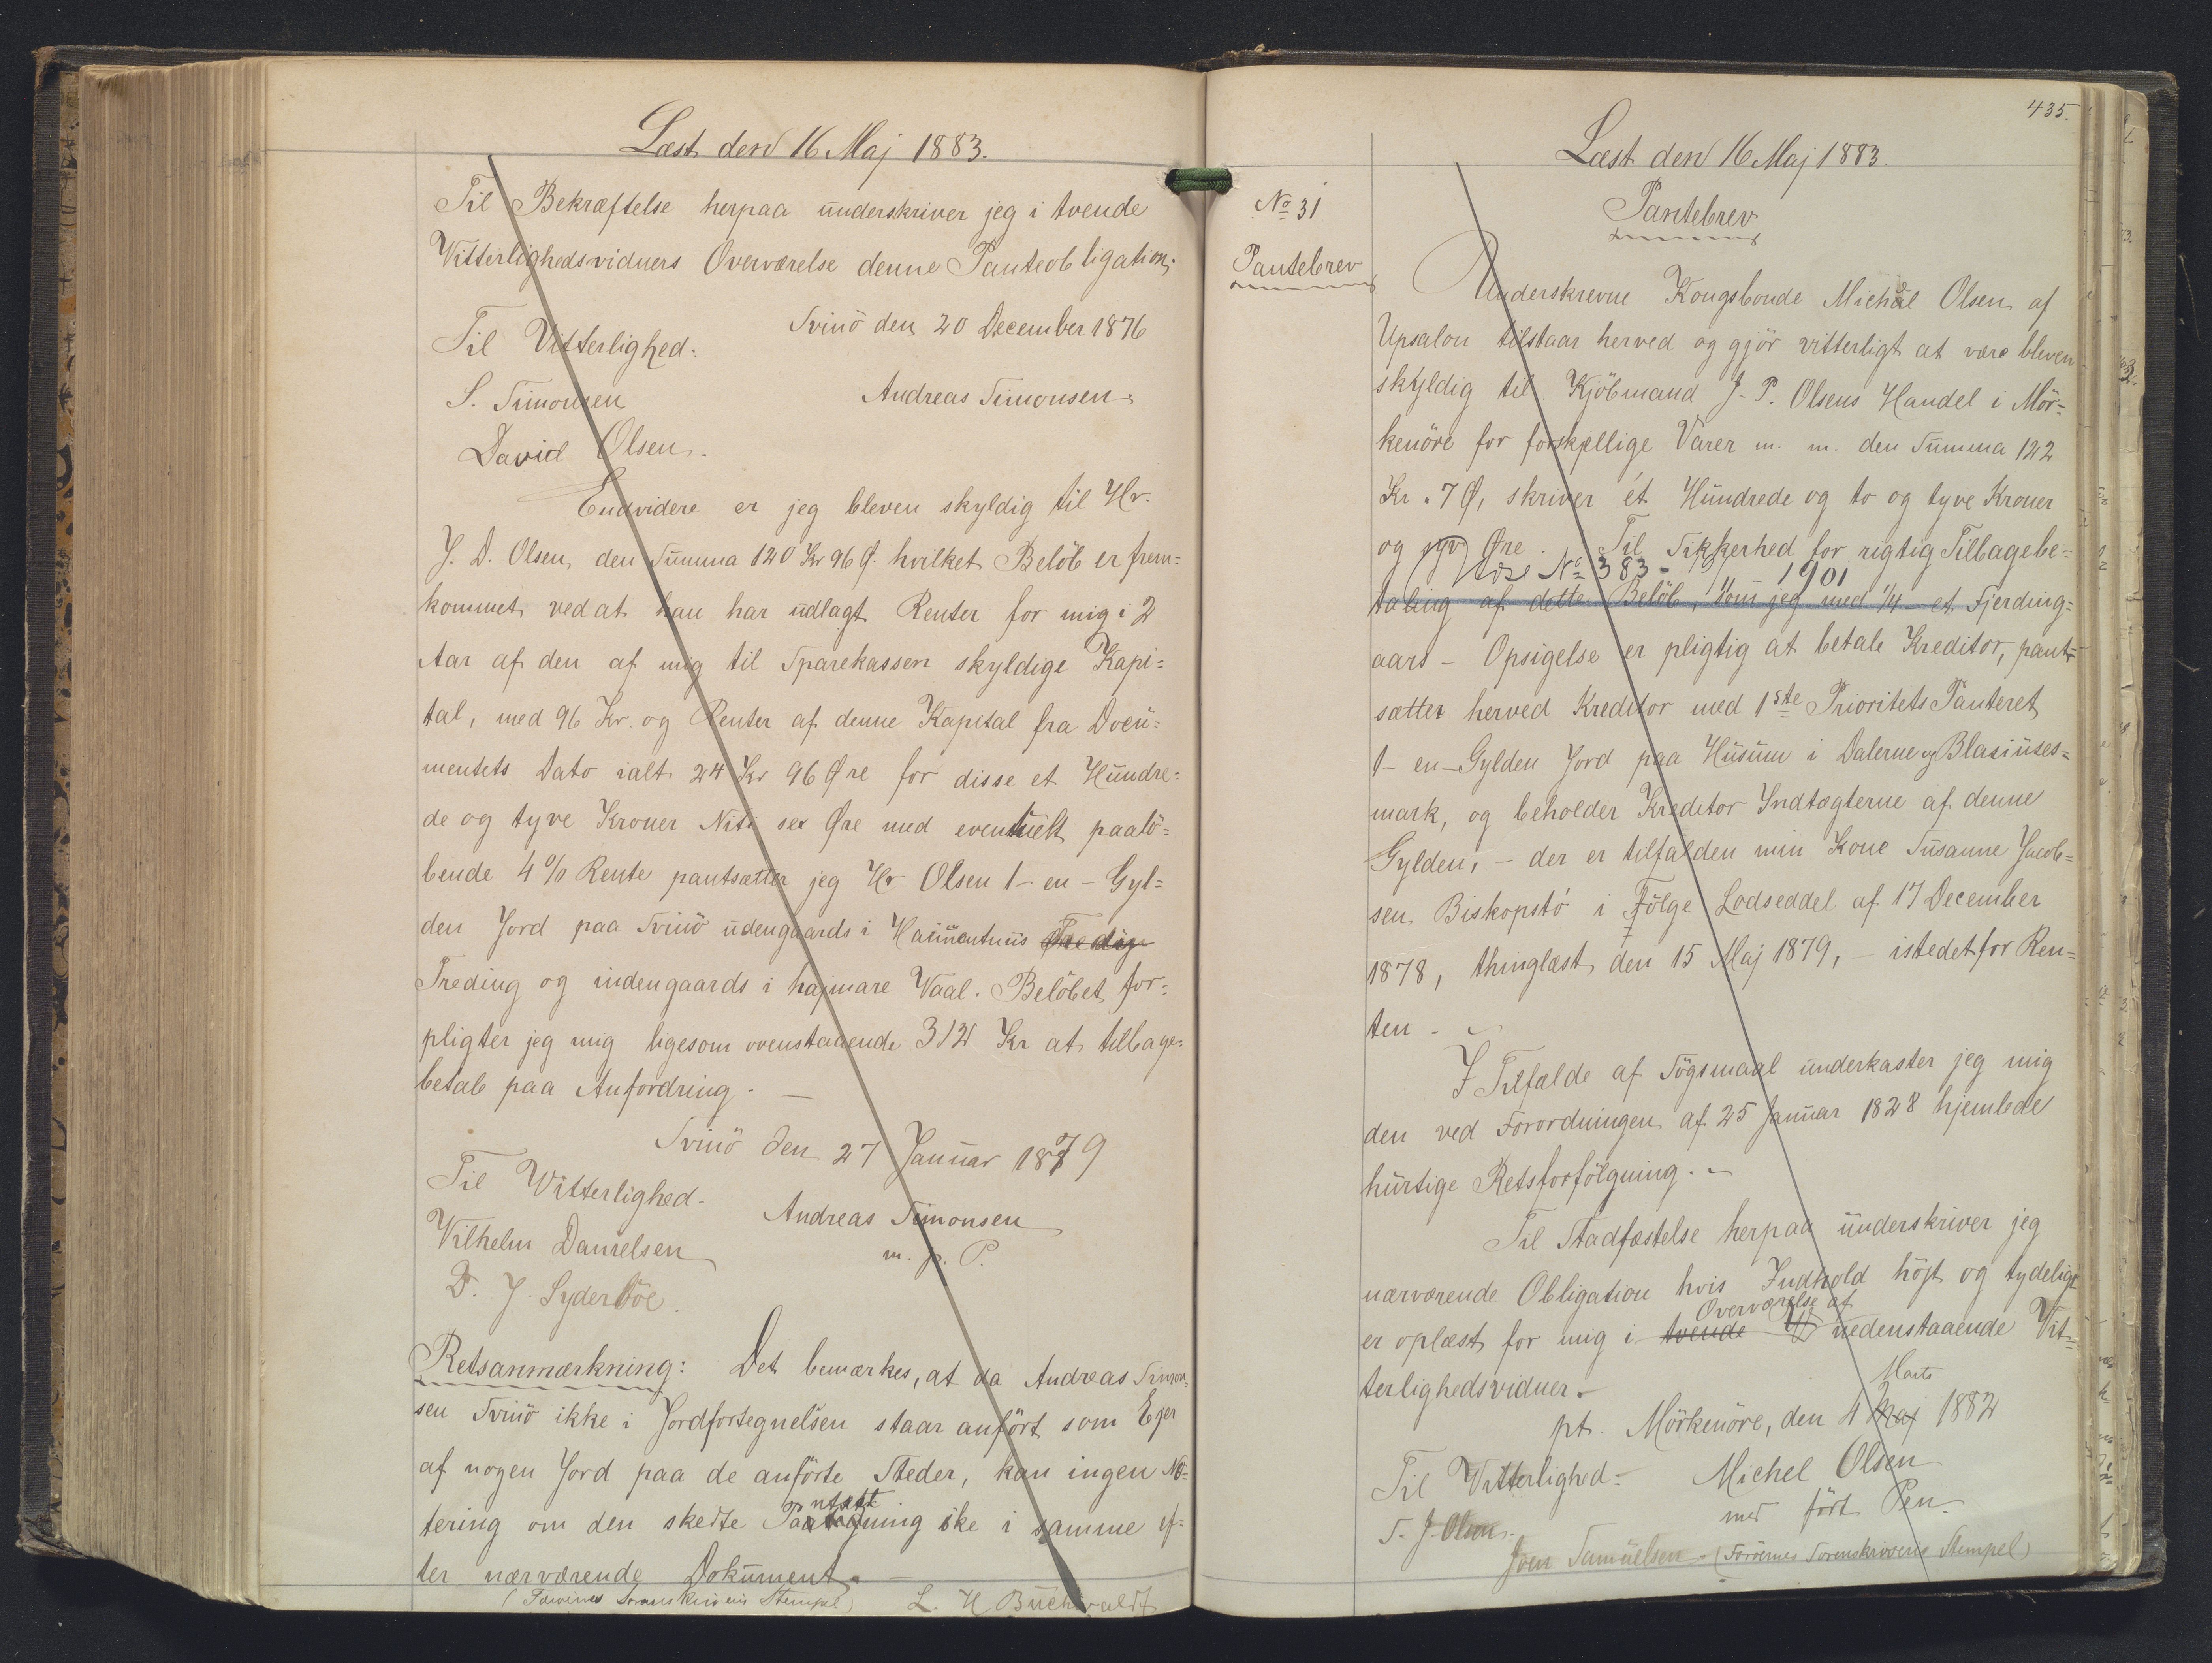 Læst den 16 Maj 1883.
Til Bekræftelse herpaa underskriver jeg i tvende
Vitterlighedsvidners Overværelse denne Panteobligation.
Svinö den 20 December 1876
Til Vitterlighed:
S. Simonsen
Andreas Simonsen
David Olsen.
Endvidere er jeg bleven skyldig til Hr.
J. D. Olsen, den Summa 120 Kr 96 Ø. hvilket Belöb er frem=
kommet ved at han har udlagt Renter for mig i 2
Aar af den af mig til Sparekassen skyldige Kapi=
tal, med 96 Kr. og Renter af denne Kapital fra Docu=
mentets Dato ialt 24 Kr 96 Øre for disse et Hundre=
de og tyve Kroner Niti sex Øre med eventuelt paalö=
bende 4 % Rente pantsætter jeg Hr Olsen 1 - en - Gyl=
den Jord paa Svinö udengaards i
Treding og indengaards i hajmare Vaal. Belöbet for=
pligter jeg mig ligesom ovenstaaende 312 Kr at tilbage=
betale paa Anfordring. —
Svinö den 27 Januar 1879
Til Vitterlighed.
Andreas Simonsen
Vilhelm Danielsen
m. p. P.
D. J. Syderböe.
Retsanmærkning: Det bemærkes, at da Andreas Simon=
sen Svinö ikke i Jordfortegnelsen staar anfört som Ejer
af nogen Jord paa de anförte Steder, kan ingen No=
tering om den skedte Pantsætning ske i samme ef=
ter nærværende Dokument. —
(Færöernes Sorenskriveris Stempel) L. H Buchwaldt
435.
Læst den 16 Maj 1883.
No 31
Pantebrev
Pantebrev
Underskrevne Kongsbonde Michael Olsen af
Upsalon tilstaar herved og gjör vitterligt at være bleven
skyldig til Kjöbmand J. P. Olsens Handel i Mör=
kenöre for forskjellige Varer m. m. den Summa 122
Kr. 7 Ø, skriver ét Hundrede og to og tyve Kroner
og syv Øre. Til Sikkerhed for rigtig Tilbagebe=
Udsl No 383 - 1901
taling af dette Belöb, som jeg med 1/4 - et Fjerding=
aars - Opsigelse er pligtig at betale Kreditor, pant=
sætter herved Kreditor med 1ste Prioritets Panteret
1 - en - Gylden Jord paa Husum i Dalerne og Blasiuses=
mark, og beholder Kreditor Indtægterne af denne
Gylden, - der er tilfalden min Kone Susanne Jacob=
sen Biskopstö i Fölge Lodseddel af 17 December
1878, thinglæst den 15 Maj 1879, - istedetfor Ren=
ten. -
I Tilfælde af Sögsmaal underkaster jeg mig
den ved Forordningen af 25 Januar 1828 hjemlede
hurtige Retsforfölgning. -
Til Stadfæstelse herpaa underskriver jeg
nærværende Obligation hvis Indhold höjt og tydeligt
Overværelse af
er oplæst for mig i tvende nedenstaaende Vit=
terlighedsvidner. -
Marts
pt. Mörkenöre, den 4 Maj 1882
Til Vitterlighed: Michel Olsen
med fört Pen
S. J. Olsen.
Joen Samuelsen. (Færöernes Sorenskriveris Stempel)